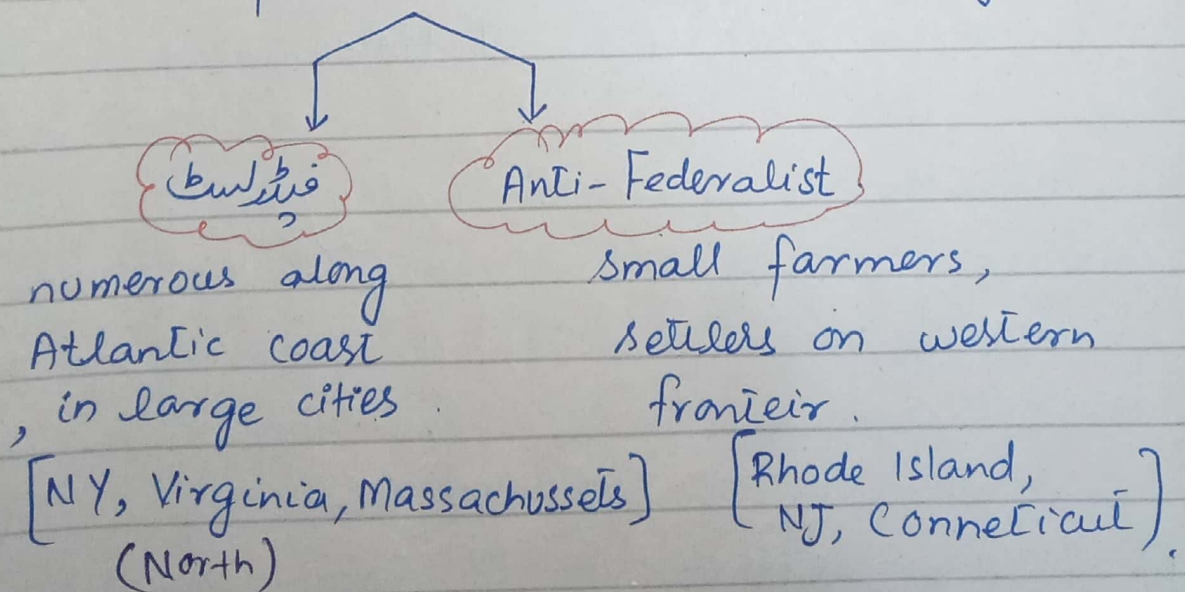 فیڈرلسٹ
Anti-Federalist
numerous along
Atlantic coast
, in large cities.
[NY, Virginia, Massachussets]
(North)
small farmers,
settlers on western
fronteir.
[Rhode Island,
NJ, Conneticut].